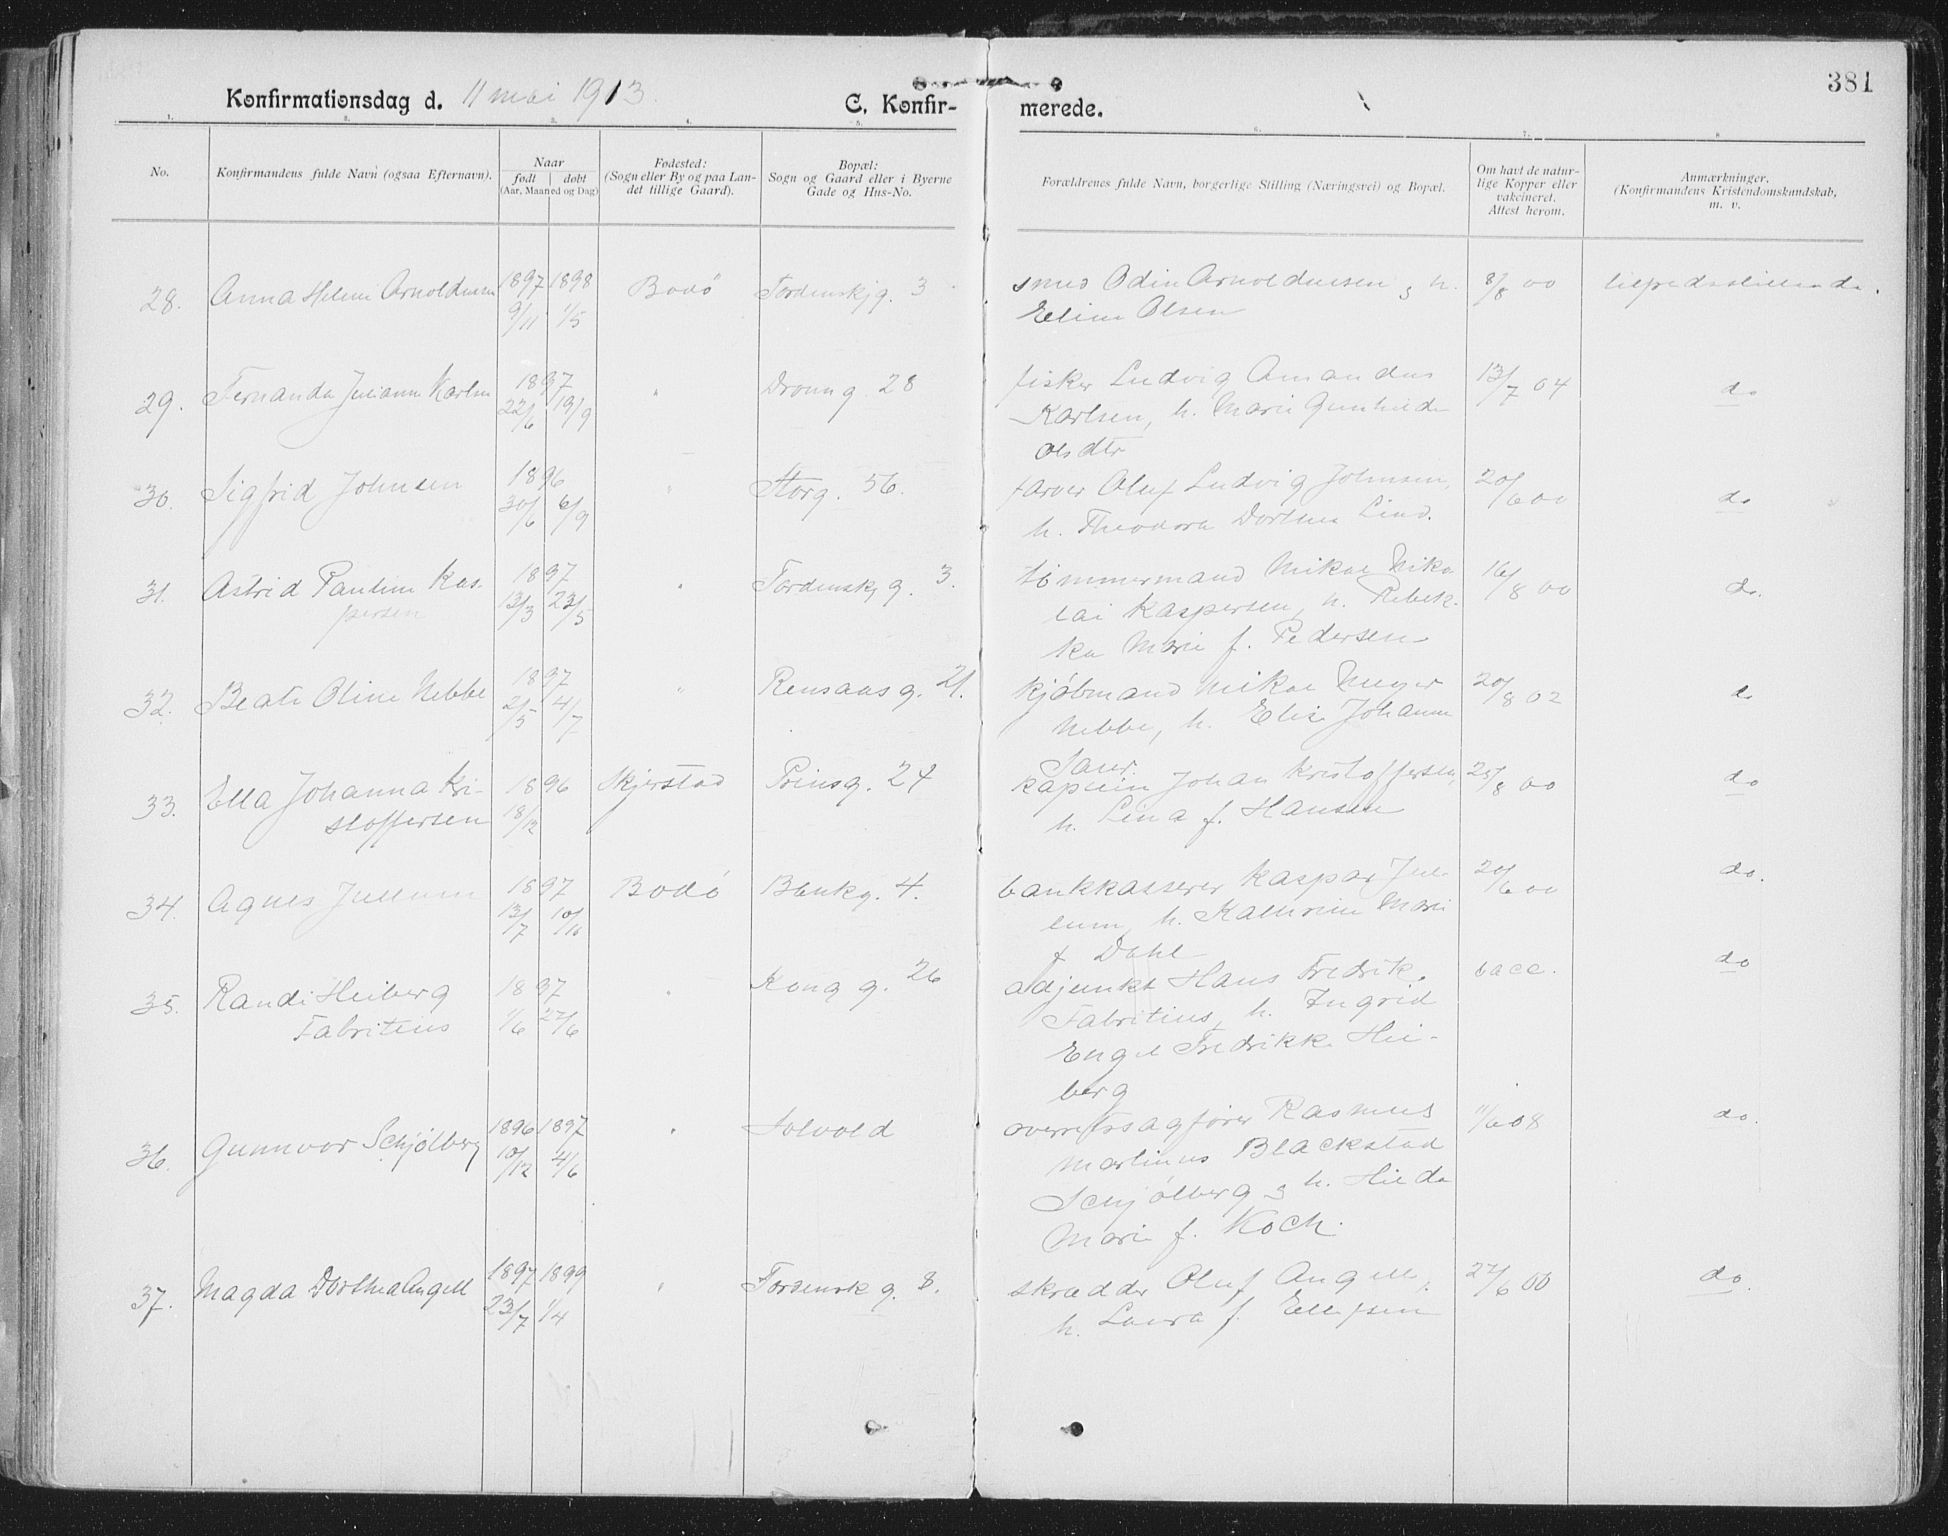 381
Konfirmationsdag d. 11 mai 1913. C. Konfir- merede.
1. 2. 3. 4. 5. 6. 7. 8.
No.
Konfirmandens fulde Navn (ogsaa Efternavn).
Naar
født | døbt
(Aar, Maaned og Dag)
Fødested:
(Sogn eller By og paa Lan-
det tillige Gaard).
Bopæl:
Sogn og Gaard eller i Byerne
Gade og Hus-No.
Forældrenes fulde Navn, borgerlige Stilling (Næringsvei) og Bopæl.
Om havt de natur-
lige Kopper eller
vakcineret.
Attest herom.
Anmærkninger,
(Konfirmandens Kristendomskundskab,
m. v.
28. Anna Helene Arnoldussen 1897 1898 Bodø Tordenskj g. 3 smed Odin Arnoldussen, h. 8/8 00 tilfredsstillende.
9/11 1/5 Eline Olsen
29. Fernanda Juliane Karlsen 1897 " Dronn g 28 fisker Ludvig Amandus 13/7 04 do
22/6 19/9 Karlsen, h. Marie Gunhilda
Olsdtr
30. Sigfrid Johnsen 1896 " Storg. 56. farver Oluf Ludvig Johnsen, 20/6 00 do
30/6 6/9 h. Theodora Dorthea Lind.
31. Astrid Pauline Kas- 1897 " Tordenskj g. 3. tømmermand Mikal Niko 16/8 00 do.
persen 13/3 23/5 lai Kaspersen, h. Rebek-
ka Marie f. Pedersen
32. Beate Oline Nebbe 1897 " Rensaas g. 21. kjøbmand Mikal Meyer 20/8 02 do
21/5 4/7 Nebbe, h. Elise Johanna
33. Ella Johanna Kri- 1896 Skjerstad Prinsg. 24 kaptein Johan Kristoffersen, 25/8 00 do
stoffersen 18/12 h. Lina f. Hansen
34. Agnes Jullum 1897 Bodø Bankg. 4. bankkasserer Kaspar Jul- 20/6 00 do.
13/7 10/10 lum, h. Kathrine Marie
f Dahl
35. Randi Heiberg 1897 " Kong g. 26 adjunkt Hans Fredrik vacc. do
Fabritius 1/6 27/6 Fabritius, h. Ingrid
Engel Fredrikke Hei-
berg
36. Gunnvor Schjølberg 1896 1897 " Solvold overretssagfører Rasmus 11/6 08 do.
10/12 4/6 Martinus Blackstad
Schjølberg, h. Hilda
Marie f. Koch.
37. Magda Dorthea Angell 1897 1899 " Tordensk g. 8. skrædder Oluf Angell, 27/6 00 do.
23/7 1/4 h. Laura f. Ellefsen